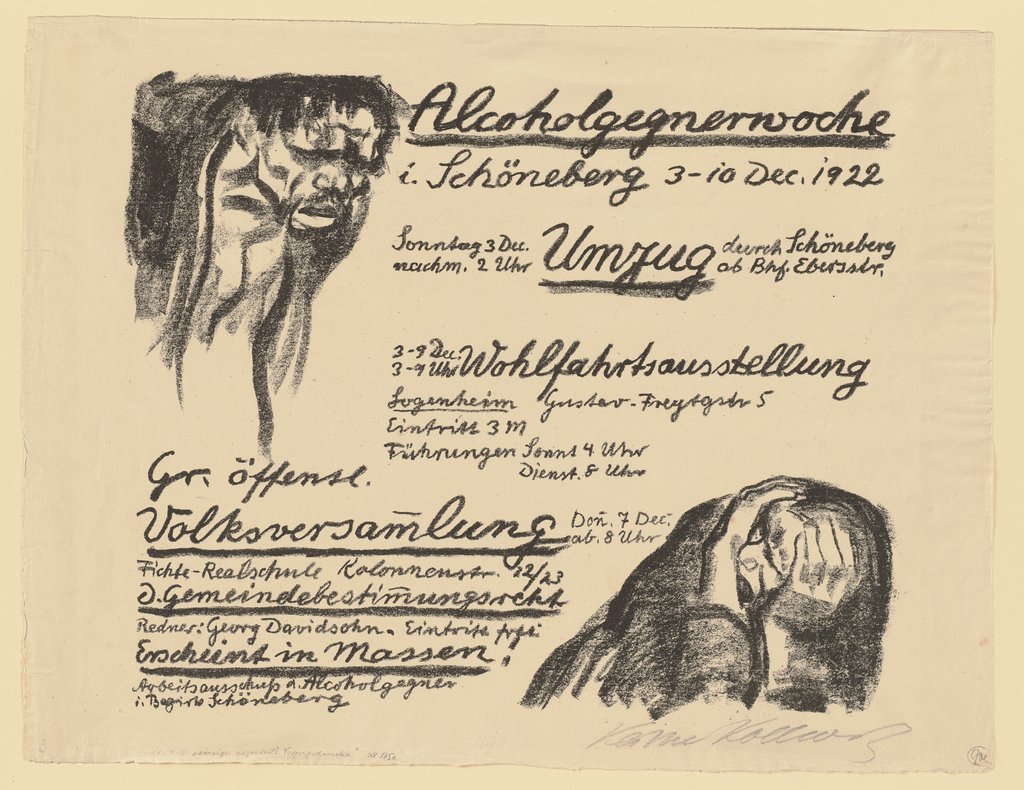 Alcoholgegnerwoche
i. Schöneberg 3-10 Dec. 1922
Sonntag 3 Dec.
nachm. 2 Uhr
Umzug
durch Schöneberg
ab Bhf. Ebersstr.
3-9 Dec.
3-9 Uhr
Wohlfahrtsausstellung
Logenheim Gustav-Freytagstr 5
Eintritt 3 M
Führungen Sonnt 4 Uhr
Dienst. 8 Uhr
Gr. öffentl.
Volksversam̄lung
Don̄. 7 Dec.
ab. 8 Uhr
Fichte-Realschule Kolonnenstr. 22/23
D. Gemeindebestim̄ungsrecht
Redner: Georg Davidsohn. Eintritt frei
Erscheint in Massen!
Arbeitsausschuß d. Alcoholgegner
i. Bezirk Schöneberg
Käthe Kollwitz